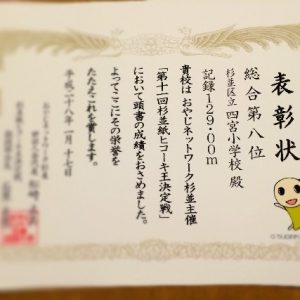 表彰状
総合第八位
杉並区立四宮小学校 殿
記録129・00m
貴校は おやじネットワーク杉並主催
「第十一回杉並紙ヒコーキ王決定戦」
において頭書の成績をおさめました。
よってここにその栄誉を
たたえこれを賞します。
平成二十八年一月十七日
おやじネットワーク杉並